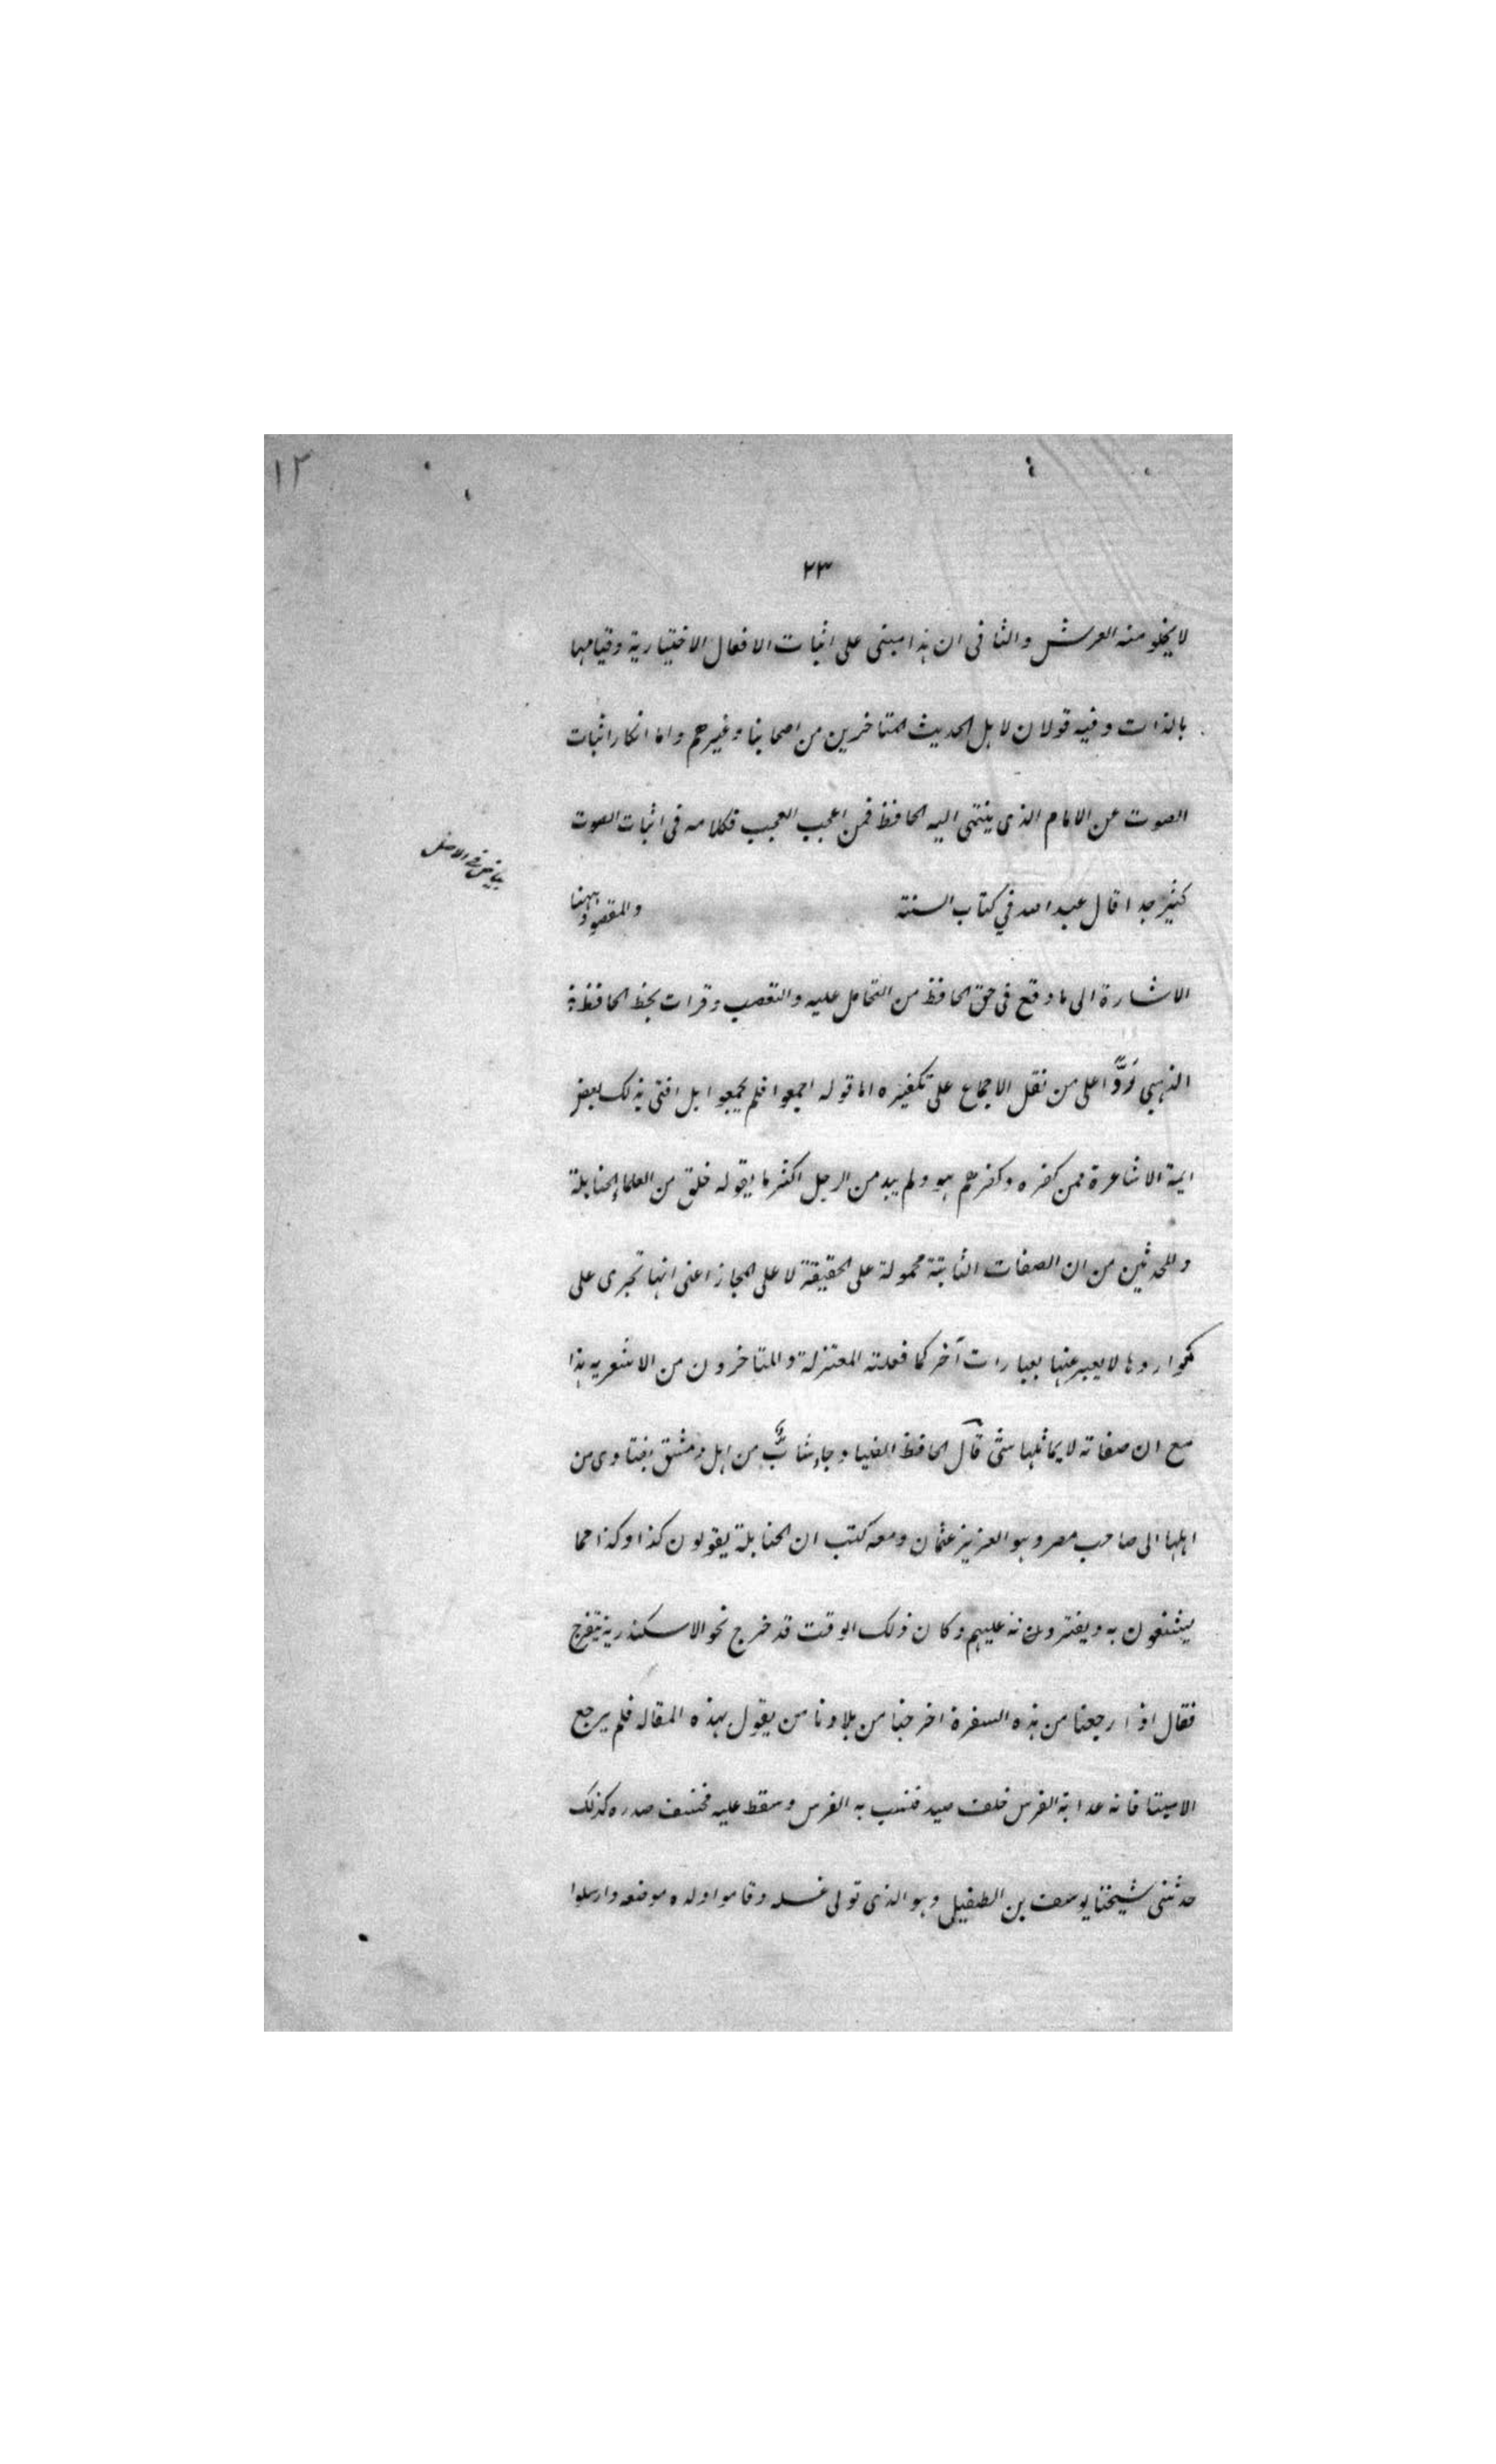 ١٢
٢٣
لا يخلو منه العرش والثانى ان هذا مبنى على اثبات الافعال الاختيارية وقيامها
بالذات وفيه قولان لاهل الحديث المتاخرين من اصحابنا وغيرهم واما انكار اثبات
الصوت عن الامام الذى ينتمى اليه الحافظ فمن اعجب العجب فكلامه فى اثبات الصوت
بياض فى الاصل
كثير جدا قال عبد الله في كتاب السنة والمقصود ههنا
الاشارة الى ما وقع فى حق الحافظ من التحامل عليه والتعصب وقرات بخط الحافظ
الذهبي رَدًّا على من نقل الاجماع على تكفيره اما قوله اجمعوا فلم يجمعوا بل افتى بذلك بعض
ايمة الاشاعرة ممن كفره وكفرهم هو ولم يبد من الرجل اكثر ما يقوله خلق من العلماء الحنابلة
والمحدثين من ان الصفات الثابتة محمولة على الحقيقة لا على المجاز اعنى انها تجرى على
مواردها لا يعبر عنها بعبارات آخر كما فعلته المعتزلة والمتاخرون من الاشعريه هذا
مع ان صفاته لا يماثلها شئ قال الحافظ الضيا وجاء شابٌّ من اهل دمشق بفتاوى من
اهلها الى صاحب مصر وهو العزيز عثمان ومعه كتب ان الحنابلة يقولون كذا وكذا مما
يشنعون به ويفترونه عليهم وكان ذلك الوقت قد خرج نحو الاسكندرية يتفرج
فقال اذا رجعنا من هذه السفرة اخرجنا من بلادنا من يقول بهذه المقاله فلم يرجع
الا ميتا فانه عدا به الفرس خلف صيد فشب به الفرس وسقط عليه فخسف صدره كذلك
حدثنى شيخنا يوسف بن الطفيل وهو الذى تولى غسله وقاموا ولده موضعه وارسلوا